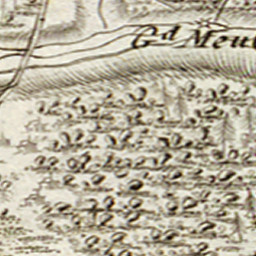 Gd Moul